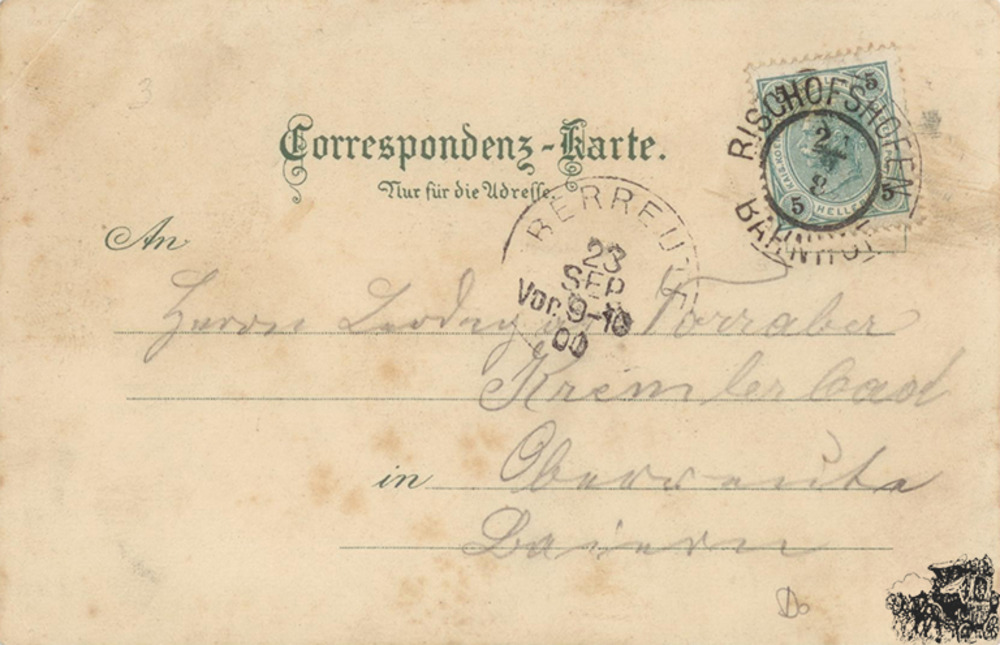 3
Correspondenz-Karte.
Nur für die Adresse
5 5
5 HELLER 5
BISCHOFSHOFEN
BAHNHOF
BERREUT
23
SEP
Vor. 9-10
00
An
Herrn Ludwig
Kremlerbad
in Oberreute
Baiern